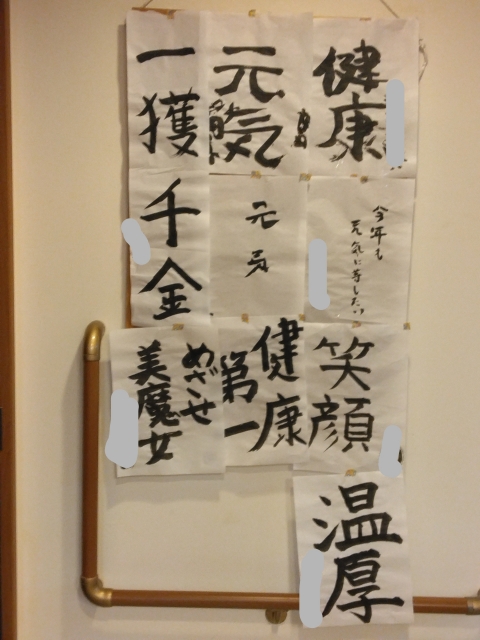 健康
元気
一獲
千金
今年も
元気に幸したい
元気
笑顔
健康
第一
めざせ
美魔女
温厚